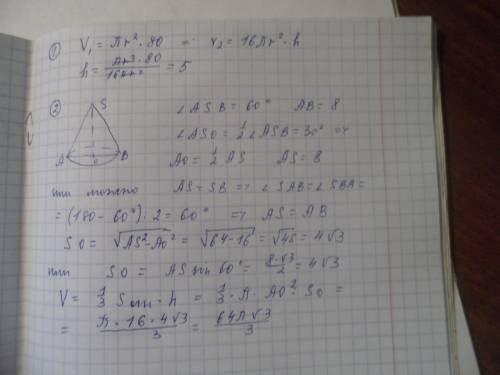 ① V₁ = πr²·80 = V₂ = 16πr²·h
h = πr²·80 / 16πr² = 5
② ∠ASB = 60° AB = 8
∠ASO = 1/2 ∠ASB = 30° ⇒
AO = 1/2 AS AS = 8
S
A
B
O
или можно AS = SB ⇒ ∠SAB = ∠SBA =
= (180 - 60°) : 2 = 60° ⇒ AS = AB
SO = √AS²-AO² = √64-16 = √48 = 4√3
или SO = AS sin 60° = 8·√3 / 2 = 4√3
V = 1/3 Sосн · h = 1/3 · π · AO² · SO =
= π · 16 · 4√3 / 3 = 64π√3 / 3